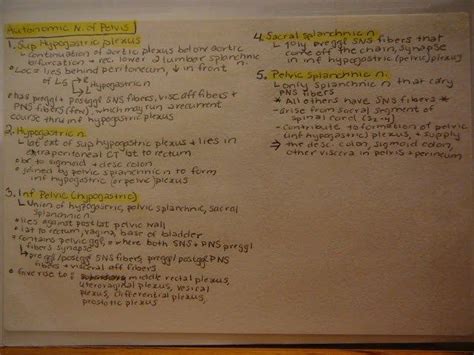 Autonomic N. of Pelvis
1. Sup Hypogastric plexus
↳ continuation of aortic plexus below aortic
bifurcation + rec lower 2 lumbar splanchnic
• Loc = lies behind peritoneum, ↓ in front
of L5 ↳ Hypogastric n
• has preggl + postggl SNS fibers, visc aff fibers +
PNS fibers (few), which may run a recurrent
course thru inf hypogastric plexus
2. Hypogastric n.
↳ lat ext of sup hypogastric plexus + lies in
extraperitoneal CT lat to rectum
• br to sigmoid + desc colon
• joined by pelvic splanchnic n to form
inf hypogastric (or pelvic) plexus
3. Inf Pelvic (Hypogastric)
↳ Union of hypogastric, pelvic splanchnic, sacral
splanchnic n.
• lies against post lat pelvic wall
• lat to rectum, vagina, base of bladder
• contains pelvic ggl, where both SNS + PNS preggl
fibers synapse
↳ preggl/postggl SNS fibers, preggl/postggl PNS
fibers + visceral aff fibers
• Gives rise to: middle rectal plexus,
uterovaginal plexus, vesical
plexus, Differential plexus,
prostatic plexus
4. Sacral splanchnic n
↳ preggl SNS fibers that
come off the chain, synapse
in inf hypogastric (pelvic) plexus
5. Pelvic Splanchnic n.
↳ only splanchnic n that carry
PNS fibers
* All others have SNS fibers *
- arise from sacral segment of
spinal cord (S2-4)
- contribute to formation of pelvic
(inf hypogastric) plexus, + supply
⇒ the desc colon, sigmoid colon,
other viscera in pelvis + perineum